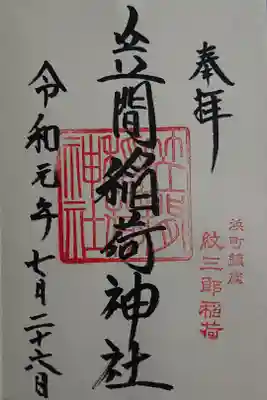 奉拝
浜町鎮座
紋三郎稲荷
笠間稲荷神社
笠間稲荷神社
令和元年七月二十六日